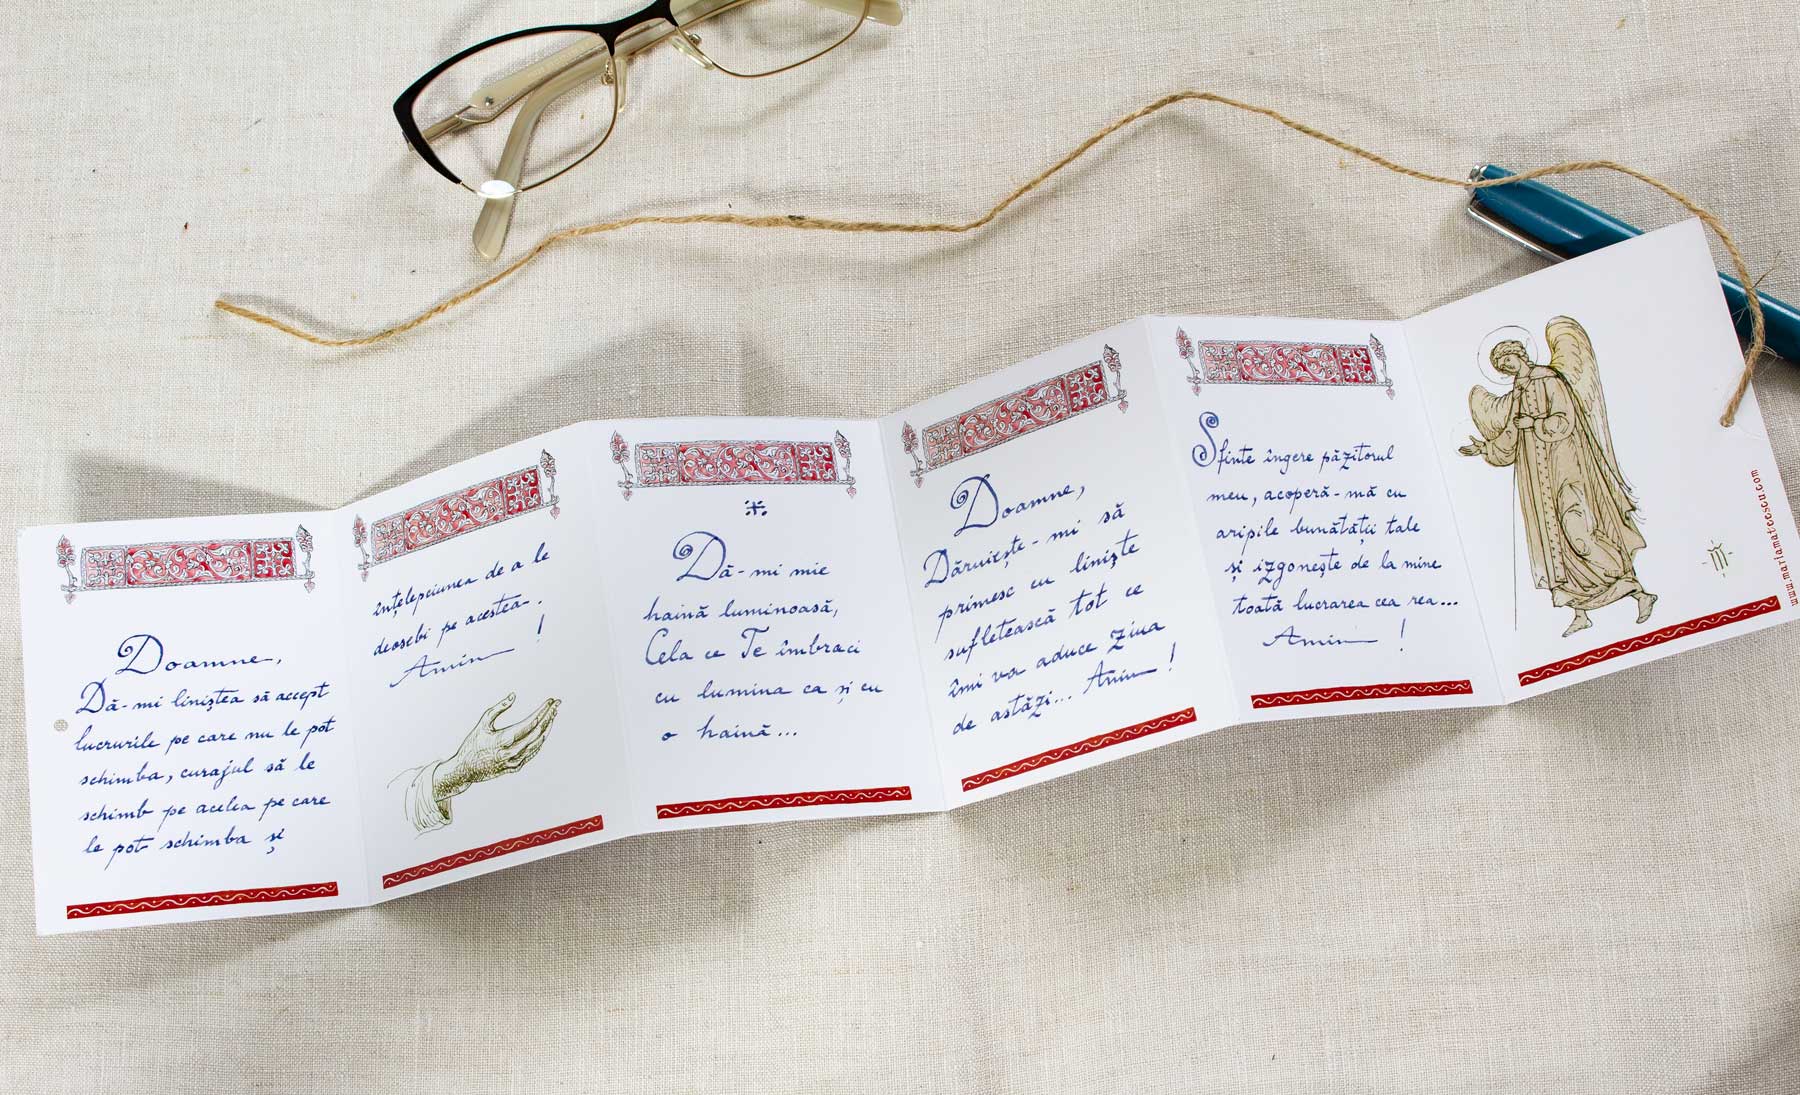 Doamne,
Dă-mi liniștea să accept
lucrurile pe care nu le pot
schimba, curajul să le
schimb pe acelea pe care
le pot schimba și
înțelepciunea de a le
deosebi pe acestea.
Amin !
Dă-mi mie
haină luminoasă,
Cela ce Te îmbraci
cu lumina ca și cu
o haină...
Doamne,
Dăruiește-mi să
primesc cu liniște
sufletească tot ce
îmi va aduce ziua
de astăzi... Amin !
Sfinte îngere păzitorul
meu, acoperă-mă cu
aripile bunătății tale
și izgonește de la mine
toată lucrarea cea rea...
Amin !
www.mariamateescu.com